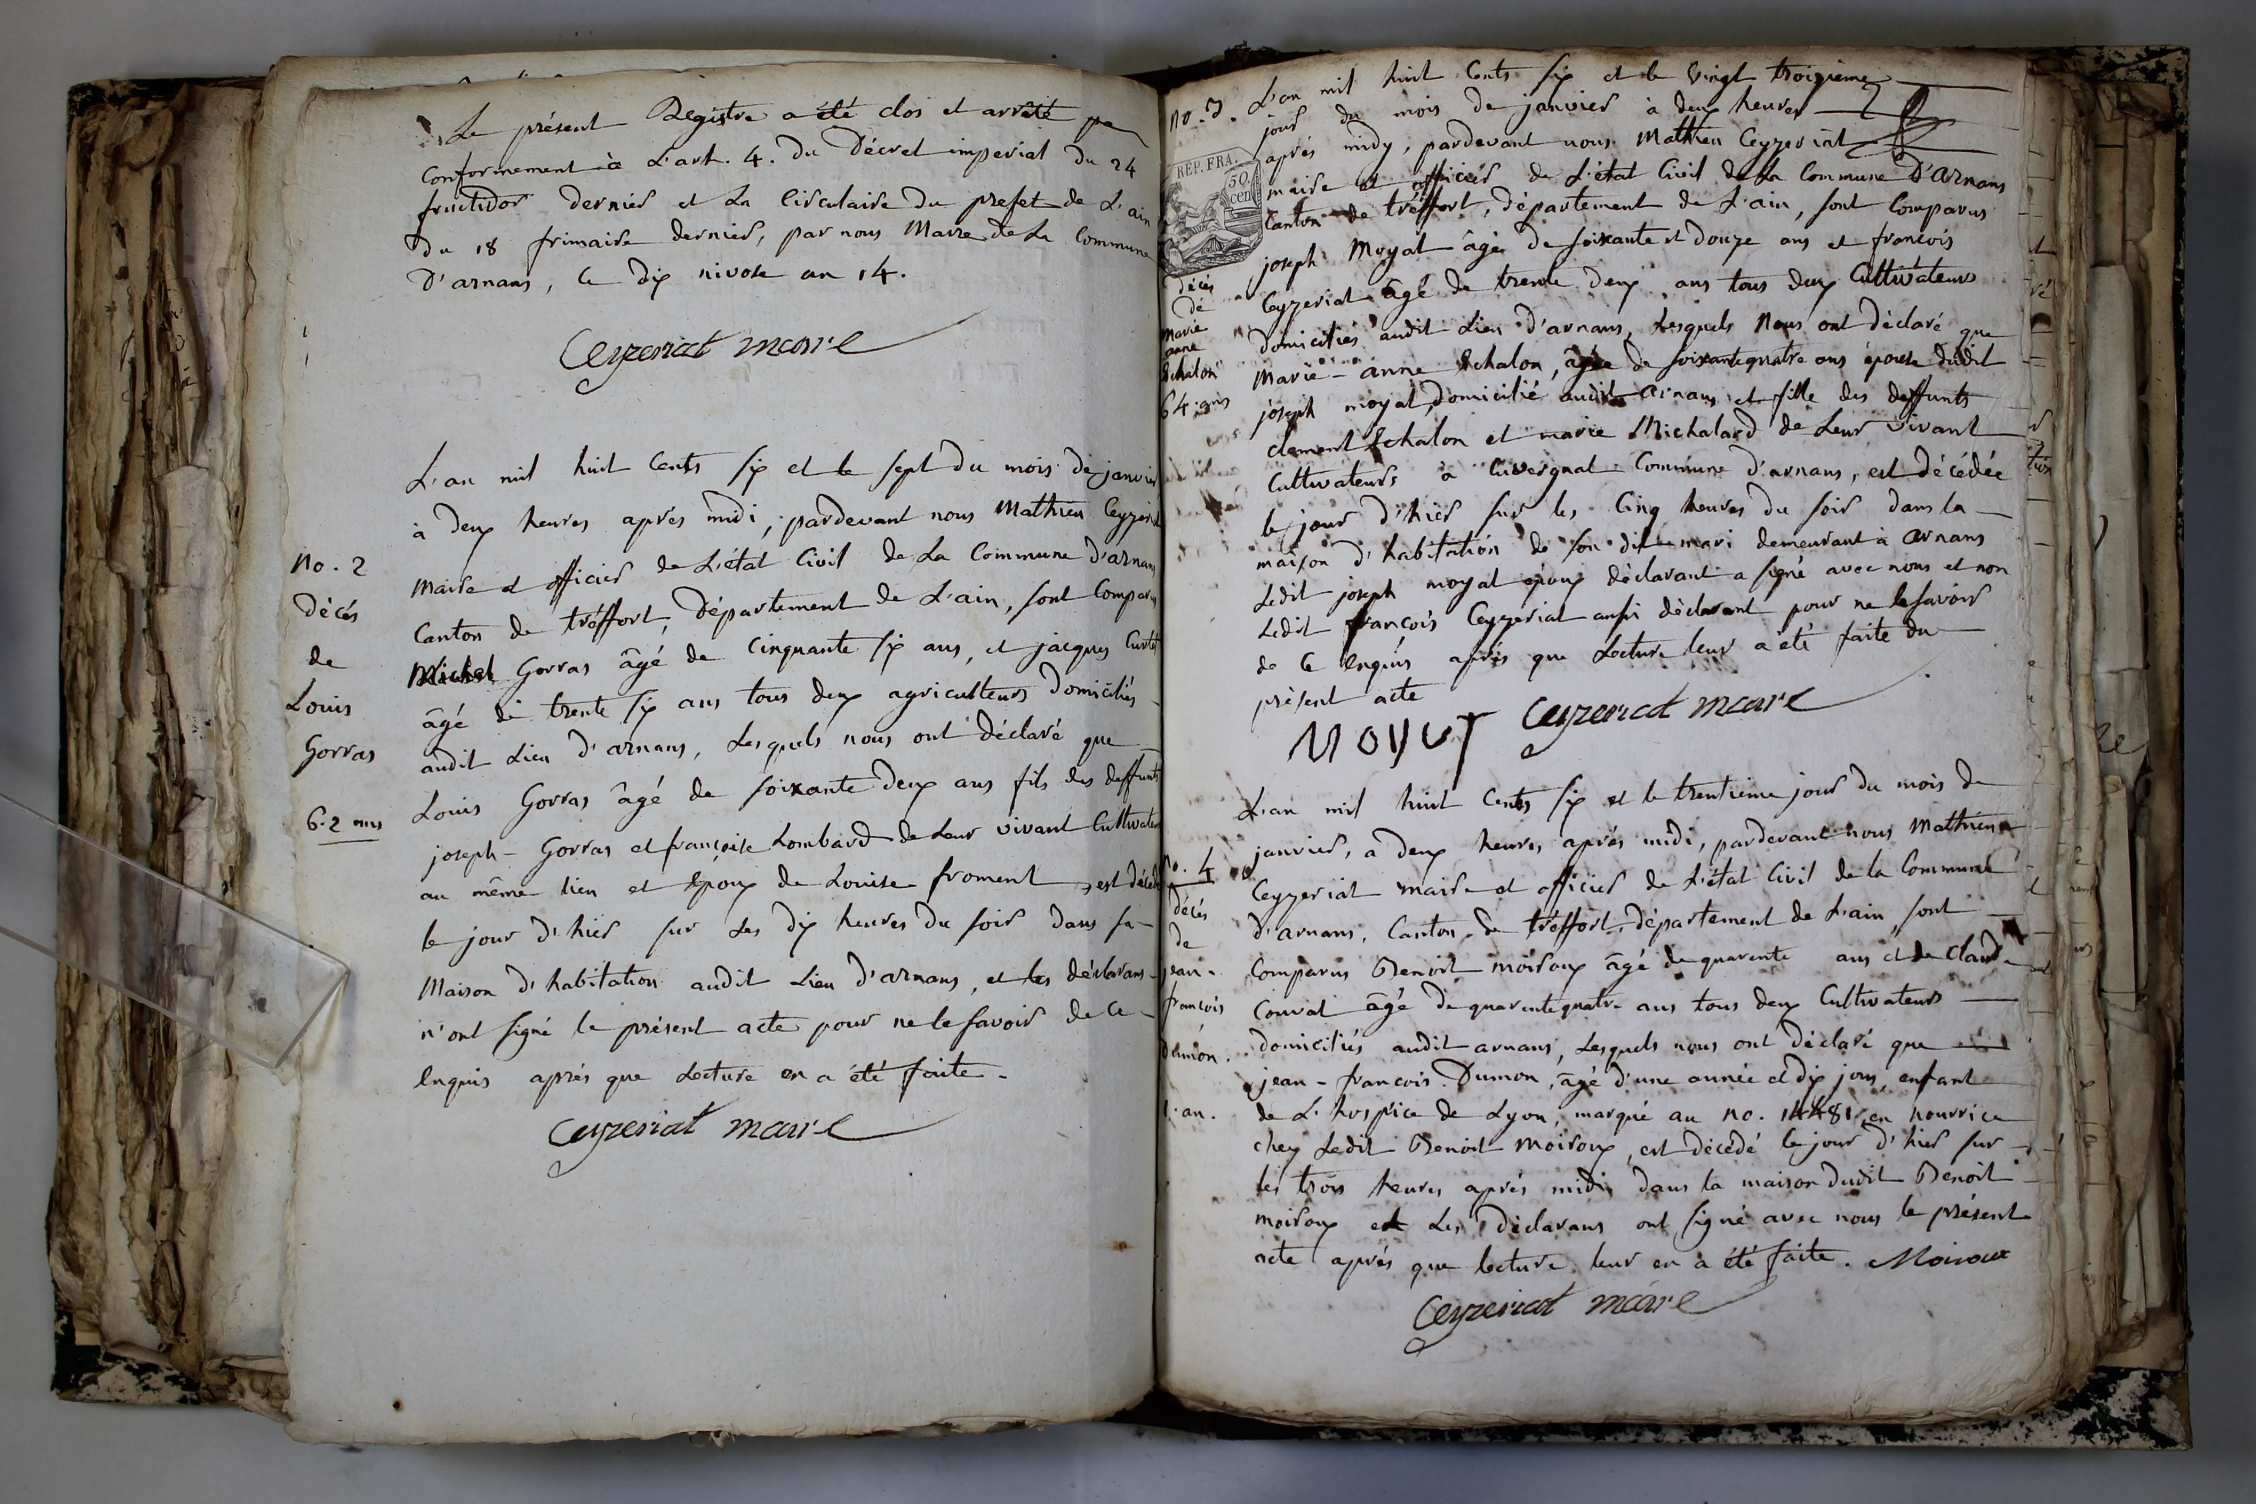 Le présent Registre a été clos et arrêté
Conformement à L'art. 4. du Décret imperial du 24
fructidor dernier et La Circulaire du prefet de L'ain
du 18 frimaire dernier, par nous Maire de La Commune
D'arnans, Ce dix nivose an 14.
Ceyzeriat maire
L'an mil huit Cents six et le sept du mois de janvier
à deux heures après midi, pardevant nous Mathieu Ceyzeriat
No. 2
Maire et officier de L'état Civil de La Commune D'arnans
décés
Canton de tréffort, Département de L'ain, sont Comparus
de
Michel Gorras âgé de Cinquante six ans, et jacques
Louis
âgé de trente six ans tous deux agriculteurs Domiciliés
Gorras
audit Lieu D'arnans, Lesquels nous ont déclaré que
62 ans
Louis Gorras âgé de soixante deux ans fils des deffunts
joseph - Gorras et françoise Lombard de Leur vivant Cultivateurs
au même lieu et Epoux de Louise froment, est décédé
le jour d'hier sur Les dix heures du soir dans sa
Maison d'habitation audit Lieu D'arnans, et les déclarans
n'ont signé le présent acte pour ne le savoir de Ce
Enquis après que Lecture en a été faite.
Ceyzeriat maire
No. 3. L'an mil huit Cents six et le vingt troisieme
jour du mois de janvier à deux heures
après midy, pardevant nous Mathieu Ceyzeriat
REP. FRA.
50 cen
maire et officier de L'état Civil de La Commune D'arnans
Canton de tréffort, département de L'ain, sont Comparus
joseph Moyat âgé de soixante et douze ans et francois
décés
Ceyzeriat âgé de trente deux ans tous deux Cultivateurs
de
domiciliés audit Lieu D'arnans, Lesquels Nous ont déclaré que
marie
anne
Echalon
Marie - anne Echalon, âgée de soixante quatre ans épouse dudit
64. ans
joseph moyat, domicilié audit arnans et fille des deffunts
clement Echalon et marie Michalard de Leur Vivant
Cultivateurs à Cuvergnat Commune D'arnans, est décédée
le jour D'hier sur les Cinq heures du soir dans la
maison d'habitation de son dit mari demeurant à arnans
Ledit joseph moyat époux déclarant a signé avec nous et non
Ledit françois Ceyzeriat aussi déclarant pour ne le savoir
de Ce Enquis après que Lecture leur a été faite du
présent acte
MOYAT Ceyzeriat maire
L'an mil huit Cents six et le trentieme jour du mois de
janvier, à deux heures après midi, pardevant nous Mathieu
No. 4
Ceyzeriat maire et officier de L'état Civil de la Commune
décés
D'arnans, Canton de tréffort, département de L'ain, sont
de
jean-
Comparus Benoit moiroux âgé de quarente ans et de Claude
françois
Convat âgé de quarente quatre ans tous deux Cultivateurs
dumon.
domiciliés audit arnans, Lesquels nous ont déclaré que
jean - francois Dumon, âgé d'une année et dix jours, enfant
1. an.
de L'hospice de Lyon, marqué au no. 14481, en nourrice
chez Ledit Benoit Moiroux, est décédé le jour d'hier sur
les trois heures après midi dans la maison dudit Benoit
moiroux et Les déclarans ont signé avec nous le présent
acte après que lecture leur en a été faite. Moiroux
Ceyzeriat maire